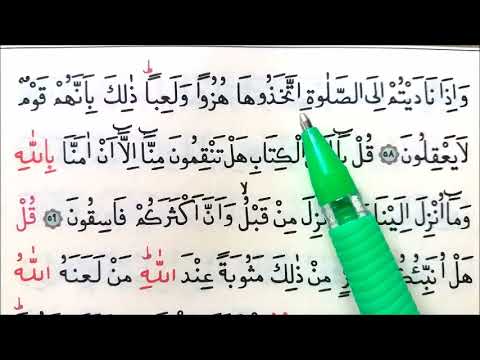 وَاِذَا نَادَيْتُمْ اِلَى الصَّلٰوةِ اتَّخَذُوهَا هُزُوًا وَلَعِبًاۜ ذٰلِكَ بِاَنَّهُمْ قَوْمٌ
لَا يَعْقِلُونَ ٥٨ قُلْ يَٓا الْكِتَابِ هَلْ تَنْقِمُونَ مِنَّٓا اِلَّٓا اَنْ اٰمَنَّا بِاللّٰهِ
وَمَٓا اُنْزِلَ اِلَيْنَا مِنْ قَبْلُۙ وَاَنَّ اَكْثَرَكُمْ فَاسِقُونَ ٥٩ قُلْ
هَلْ مِنْ ذٰلِكَ مَثُوبَةً عِنْدَ اللّٰهِۜ مَنْ لَعَنَهُ اللّٰهُ